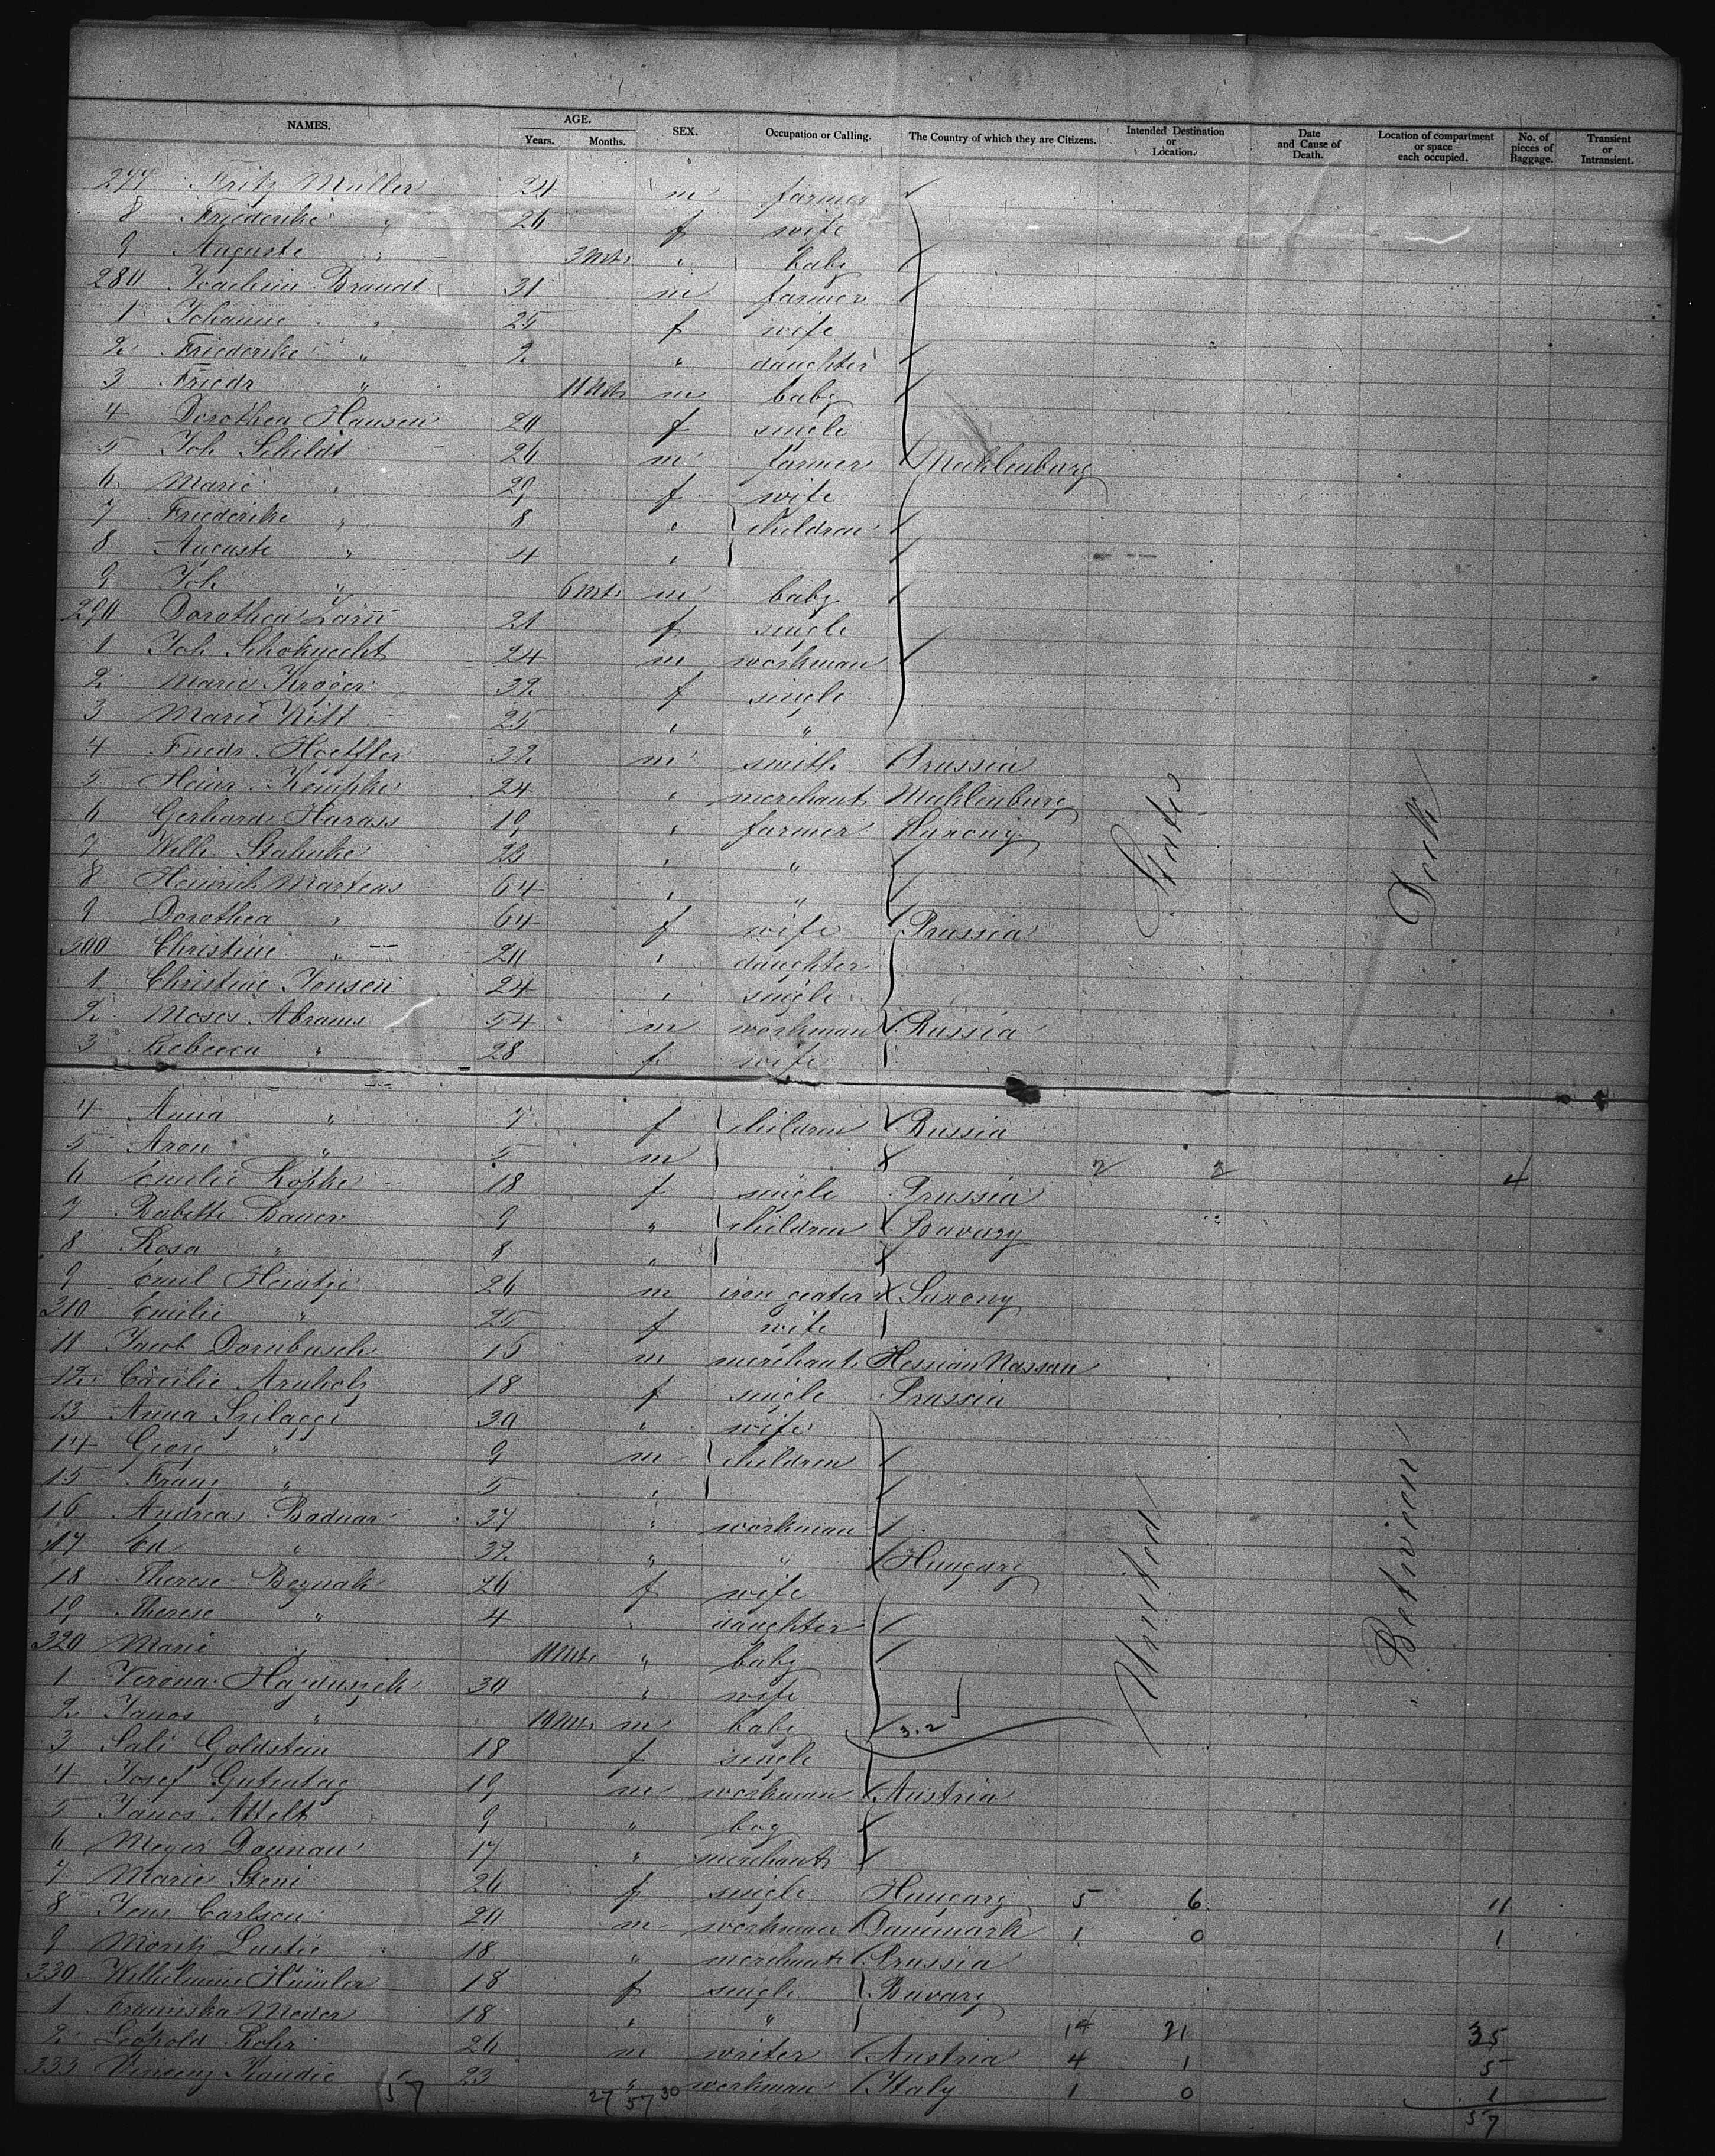 NAMES. AGE. Years. Months. SEX. Occupation or Calling. The Country of which they are Citizens. Intended Destination or Location. Date and Cause of Death. Location of compartment or space each occupied. No. of pieces of Baggage. Transient or Intransient.
277 Fritz Müller 24 m farmer
8 Friederike " 26 f wife
9 Auguste " 3 Mts " baby
280 Joachim Brandt 31 m farmer
1 Johanne " 25 f wife
2 Friederike " 2 " daughter
3 Friedr " 11 Mts m baby
4 Dorothea Hansen 20 f single
5 Joh Schildt 26 m farmer Mecklenburg
6 Marie " 29 f wife
7 Friederike " 8 " children
8 Auguste " 4 "
9 Joh " 6 Mts m baby
290 Dorothea 21 f single
1 Joh Schoknecht 24 m workman
2 Marie Kröger 32 f single
3 Marie Kitt 25 " "
4 Friedr. Hoeffler 32 m smith Prussia
5 Heinr. Kempke 24 " merchant Mecklenburg
6 Gerhard Harass 19 " farmer Saxony
7 Wilh. Stahnke 22 " "
8 Heinrich Martens 64 " "
9 Dorothea " 64 f wife Prussia
300 Christine " 20 " daughter
1 Christine Jensen 24 " single
2 Moses Abrams 54 m workman Russia
3 Rebecca " 28 f wife
4 Anna " 7 f children Russia
5 Aron " 5 m 2 2 4
6 Emilie Köpke 18 f single Prussia
7 Babette Bauer 9 " children Bavary
8 Rosa " 8 "
9 Emil Heintze 26 m iron Saxony
310 Emilie " 25 f wife
11 Jacob Dornbusch 15 m merchant Hessian Nassau
12 Cäcilie Arnholz 18 f single Prussia
13 Anna Szilaggi 30 " wife
14 Georg " 9 m children
15 Franz " 5 "
16 Andreas Bodnar 37 " workman
17 Ed " 32 " " Hungary
18 Therese 26 f wife
19 Therese " 4 " daughter
320 Marie " 11 Mts " baby
1 Verona Hajduszek 30 " wife
2 Janos " 10 Mts m baby 3.2
3 Sali Goldstein 18 f single
4 Josef Gutentag 19 m workman Austria
5 Janos 9 " boy
6 Meyer 17 " merchant
7 Marie 26 f single Hungary 5 6 11
8 Jens Carlsen 20 m workman Danmark 1 0 1
9 Moritz Lustic 18 " merchant Prussia
330 Wilhelmine 18 f single Bavary
1 Franziska Meder 18 " " 14 21 35
2 Leopold Kohn 26 m writer Austria 4 1 5
333 Vincenz 23 " workman Italy 1 0 1
57 27 57 30 57
United States
Between Deck